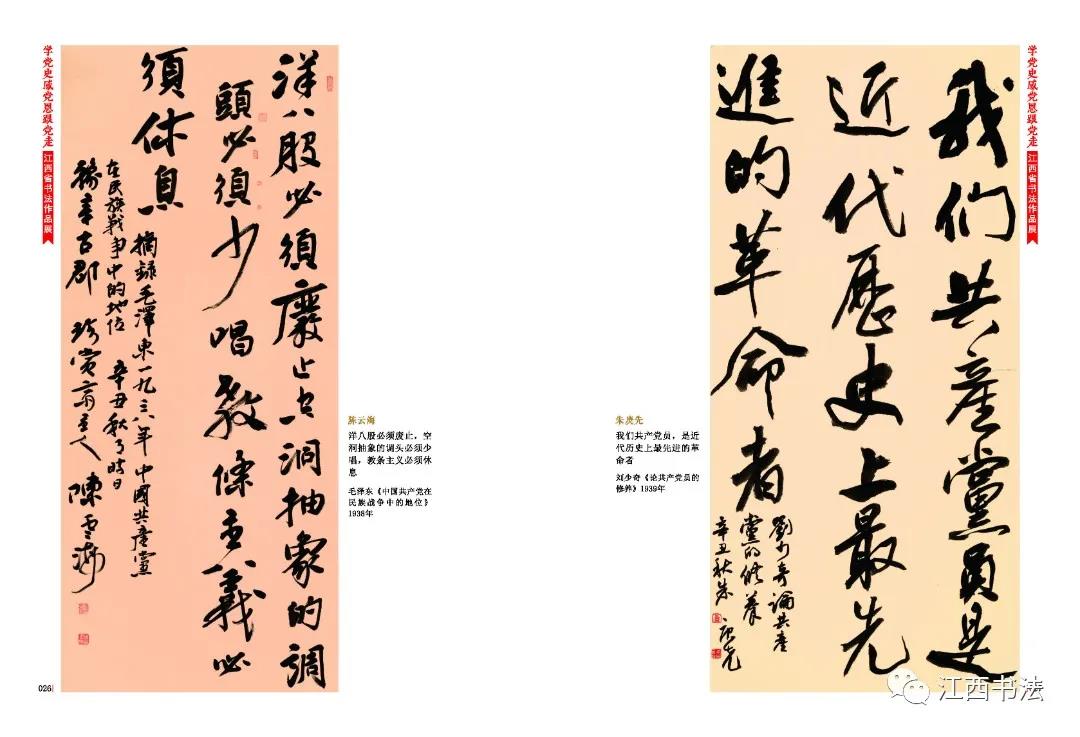 学党史感党恩跟党走
江西省书法作品展
洋八股必须廢止空洞抽象的調
頭必須少唱教條主義必
須休息
摘録毛澤東一九三八年中國共產黨
在民族戰争中的地位 辛丑秋月時日
豫章古郡 主人 陳雲海
陈云海
洋八股必须废止,空
洞抽象的调头必须少
唱,教条主义必须休
息
毛泽东《中国共产党在
民族战争中的地位》
1938年
026
朱虎先
我们共产党员,是近
代历史上最先进的革
命者
刘少奇《论共产党员的
修养》1939年
我们共產黨員是
近代歷史上最先
進的革命者
劉少奇論共產
黨的修养
辛丑秋朱虎先
学党史感党恩跟党走
江西省书法作品展
江西书法